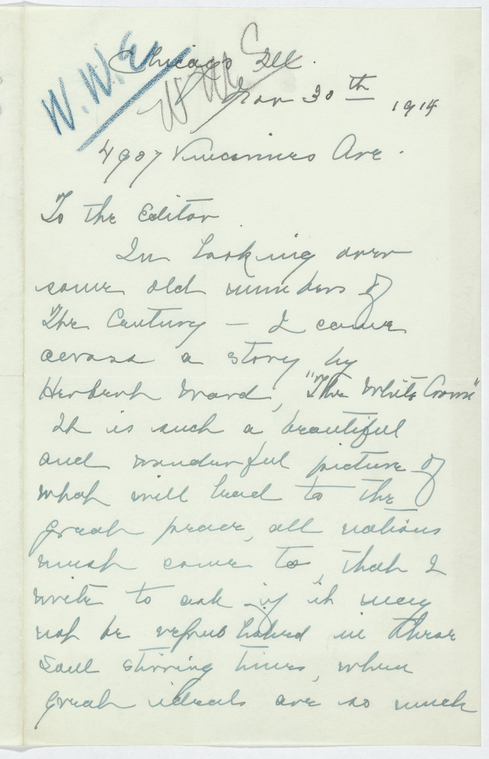 W.W.E.
Chicago Ill.
Nov 30th 1914
4907 Vincennes Ave.
To the Editor
In looking over
some old numbers of
The Century – I came
across a story by
Herbert Ward, "The White Crown"
It is such a beautiful
and wonderful picture of
what will lead to the
great peace, all nations
must come to, that I
write to ask if it may
not be republished in these
soul stirring times, when
great ideals are so much